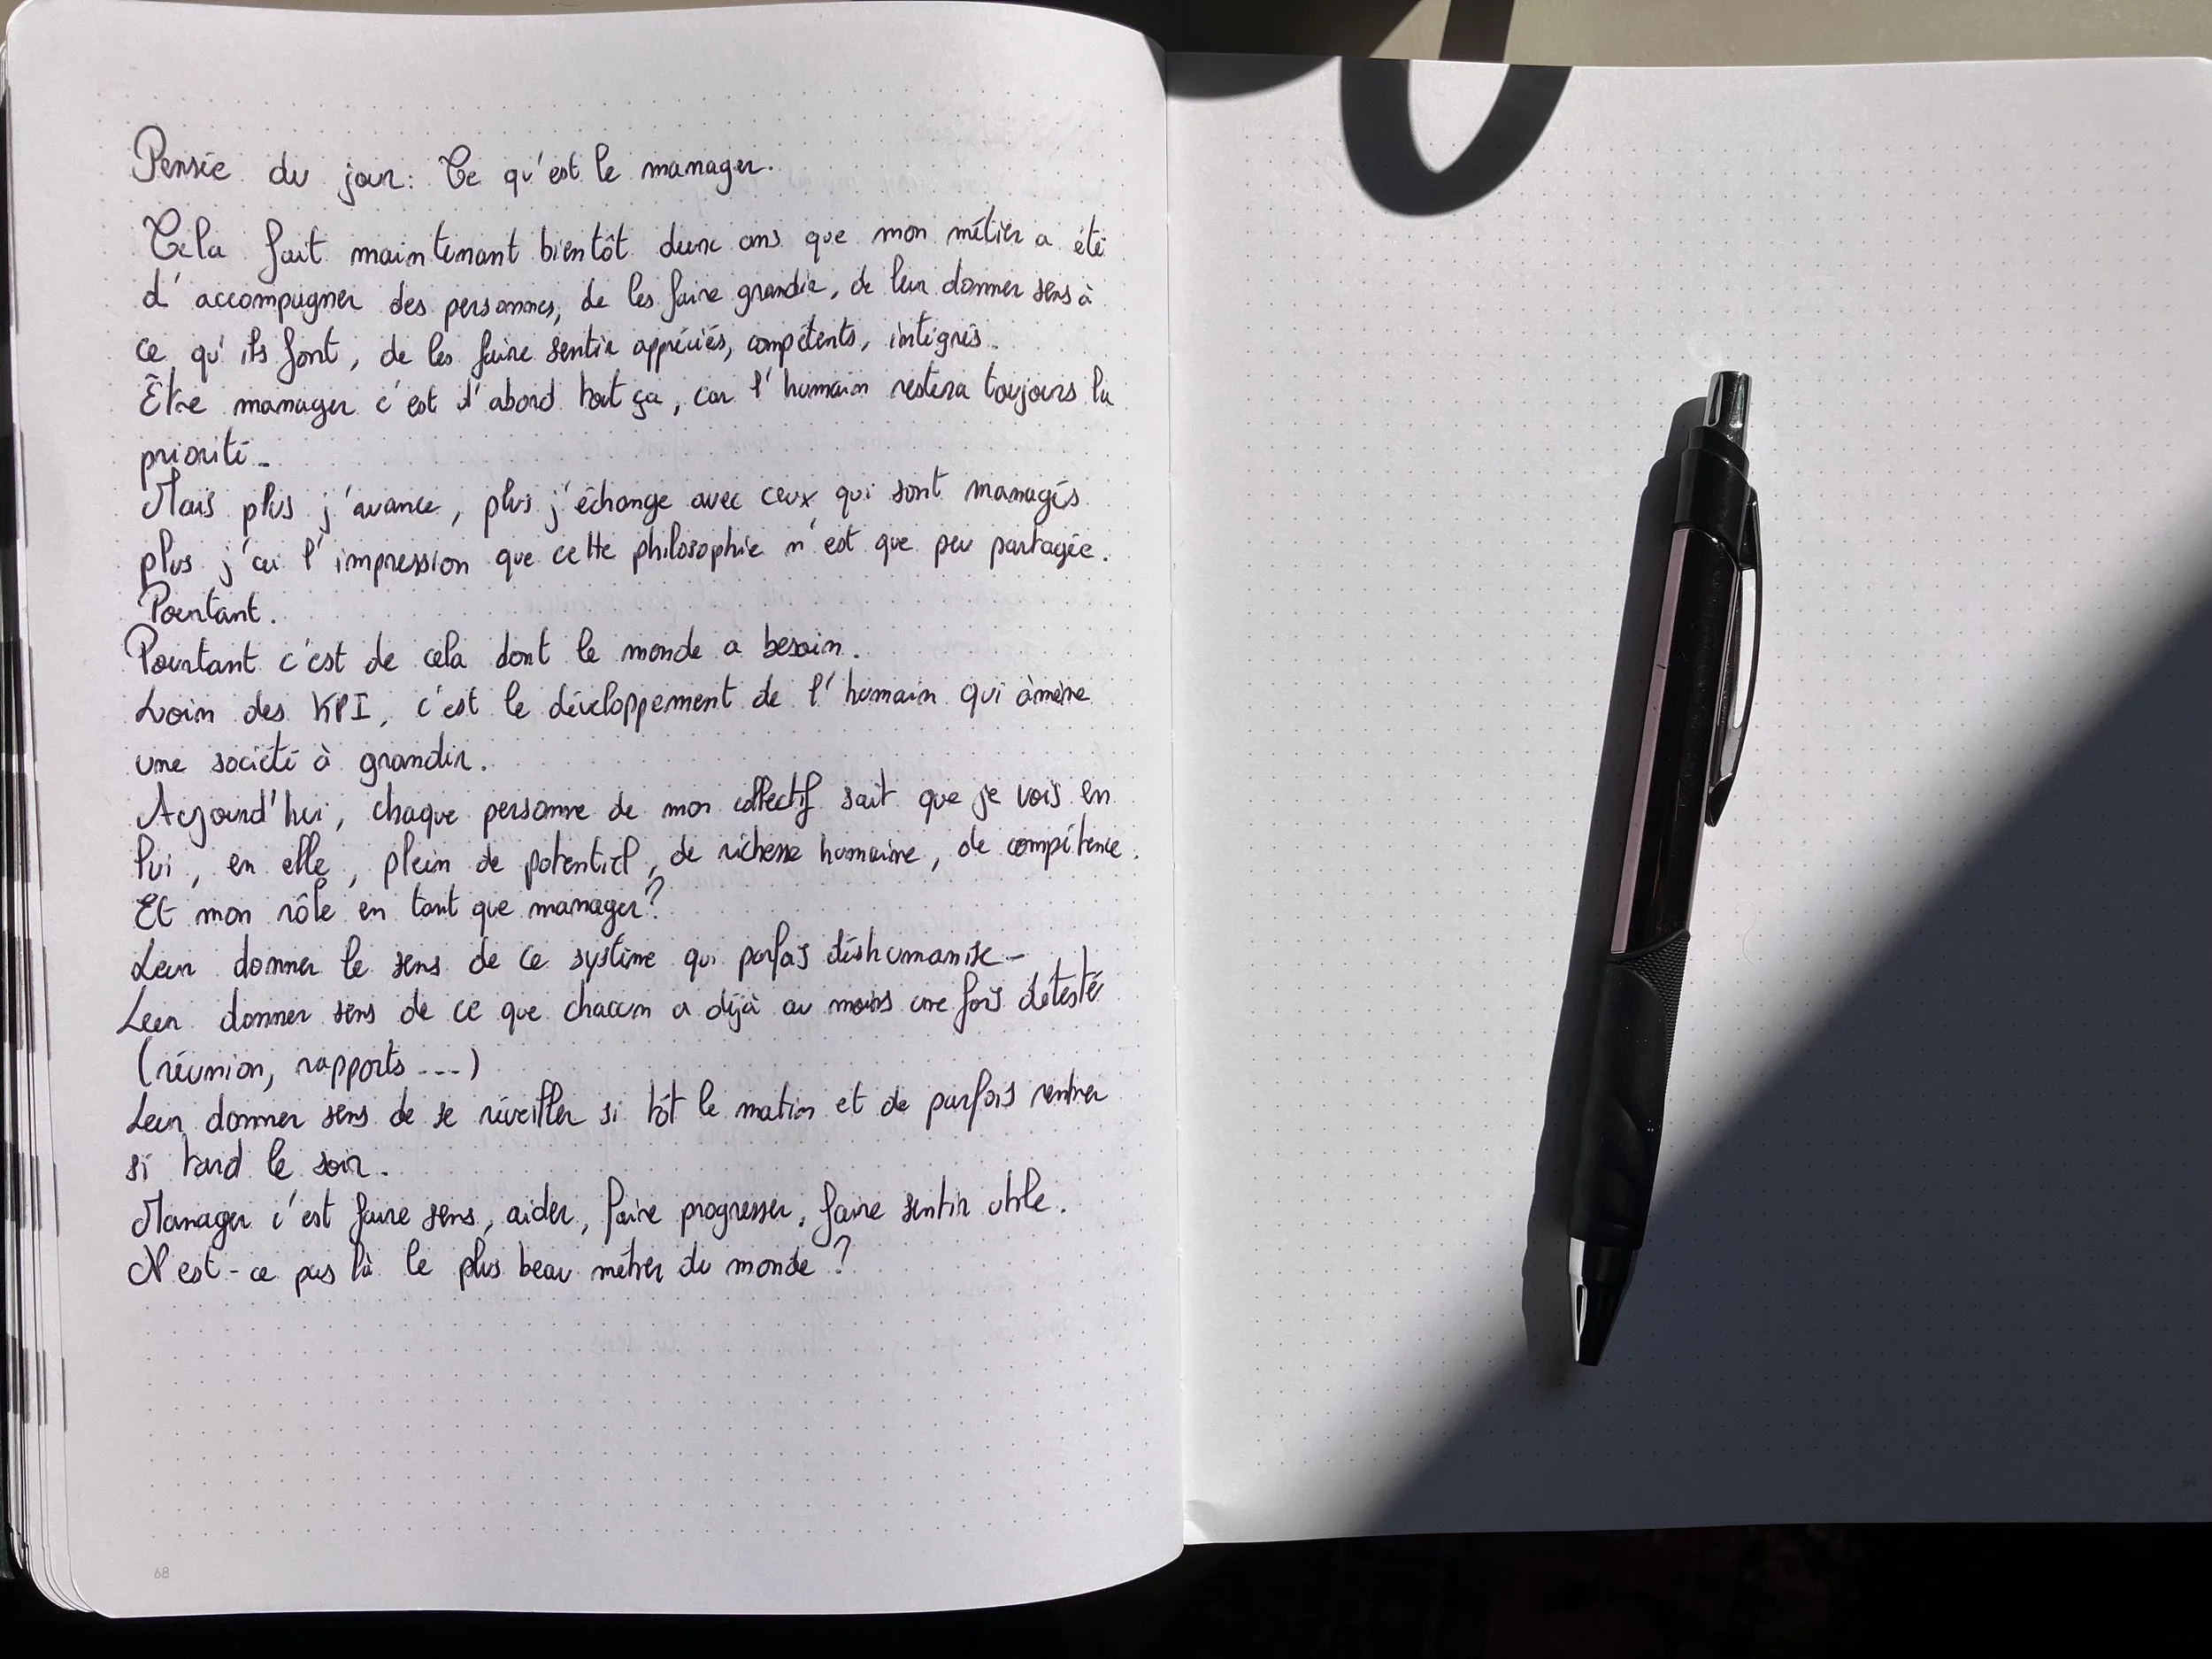 Pensée du jour: Ce qu'est le manager.
Cela fait maintenant bientôt deux ans que mon métier a été
d'accompagner des personnes, de les faire grandir, de leur donner sens à
ce qu'ils font, de les faire sentir appréciés, compétents, intégrés.
Être manager c'est d'abord tout ça, car l'humain restera toujours la
priorité.
Mais plus j'avance, plus j'échange avec ceux qui sont managés
plus j'ai l'impression que cette philosophie n'est que peu partagée.
Pourtant.
Pourtant c'est de cela dont le monde a besoin.
Loin des KPI, c'est le développement de l'humain qui amène
une société à grandir.
Aujourd'hui, chaque personne de mon collectif sait que je vois en
lui, en elle, plein de potentiel, de richesse humaine, de compétence.
Et mon rôle en tant que manager?
Leur donner le sens de ce système qui parfois déshumanise.
Leur donner sens de ce que chacun a déjà au moins une fois détesté
(réunion, rapports ...)
Leur donner sens de se réveiller si tôt le matin et de parfois rentrer
si tard le soir.
Manager c'est faire sens, aider, faire progresser, faire sentir utile.
N'est-ce pas là le plus beau métier du monde ?
68